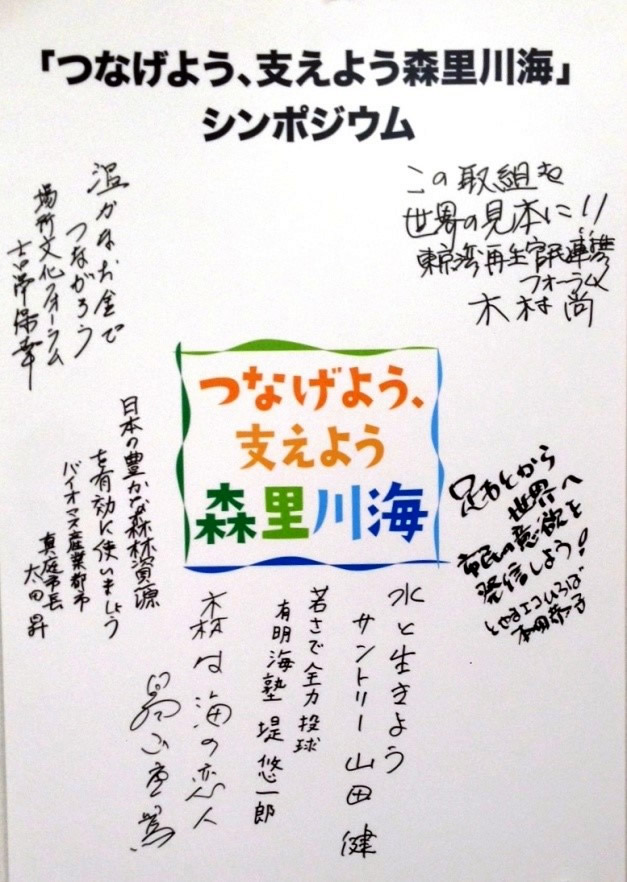 「つなげよう、支えよう森里川海」
シンポジウム
この取組を
世界の見本に!!
東京湾再生官民連携
フォーラム
木村 尚
温かなお金で
つながろう
場所文化フォーラム
吉澤保幸
つなげよう、
支えよう
森里川海
日本の豊かな森林資源
を有効に使いましょう
バイオマス産業都市
真庭市長
太田昇
足もとから
世界へ
市民の意欲を
発信しよう!
とやまエコひろば
本田恭子
水と生きよう
サントリー 山田 健
若さで全力投球
有明海塾 堤 悠一郎
森は海の恋人
畠山重篤